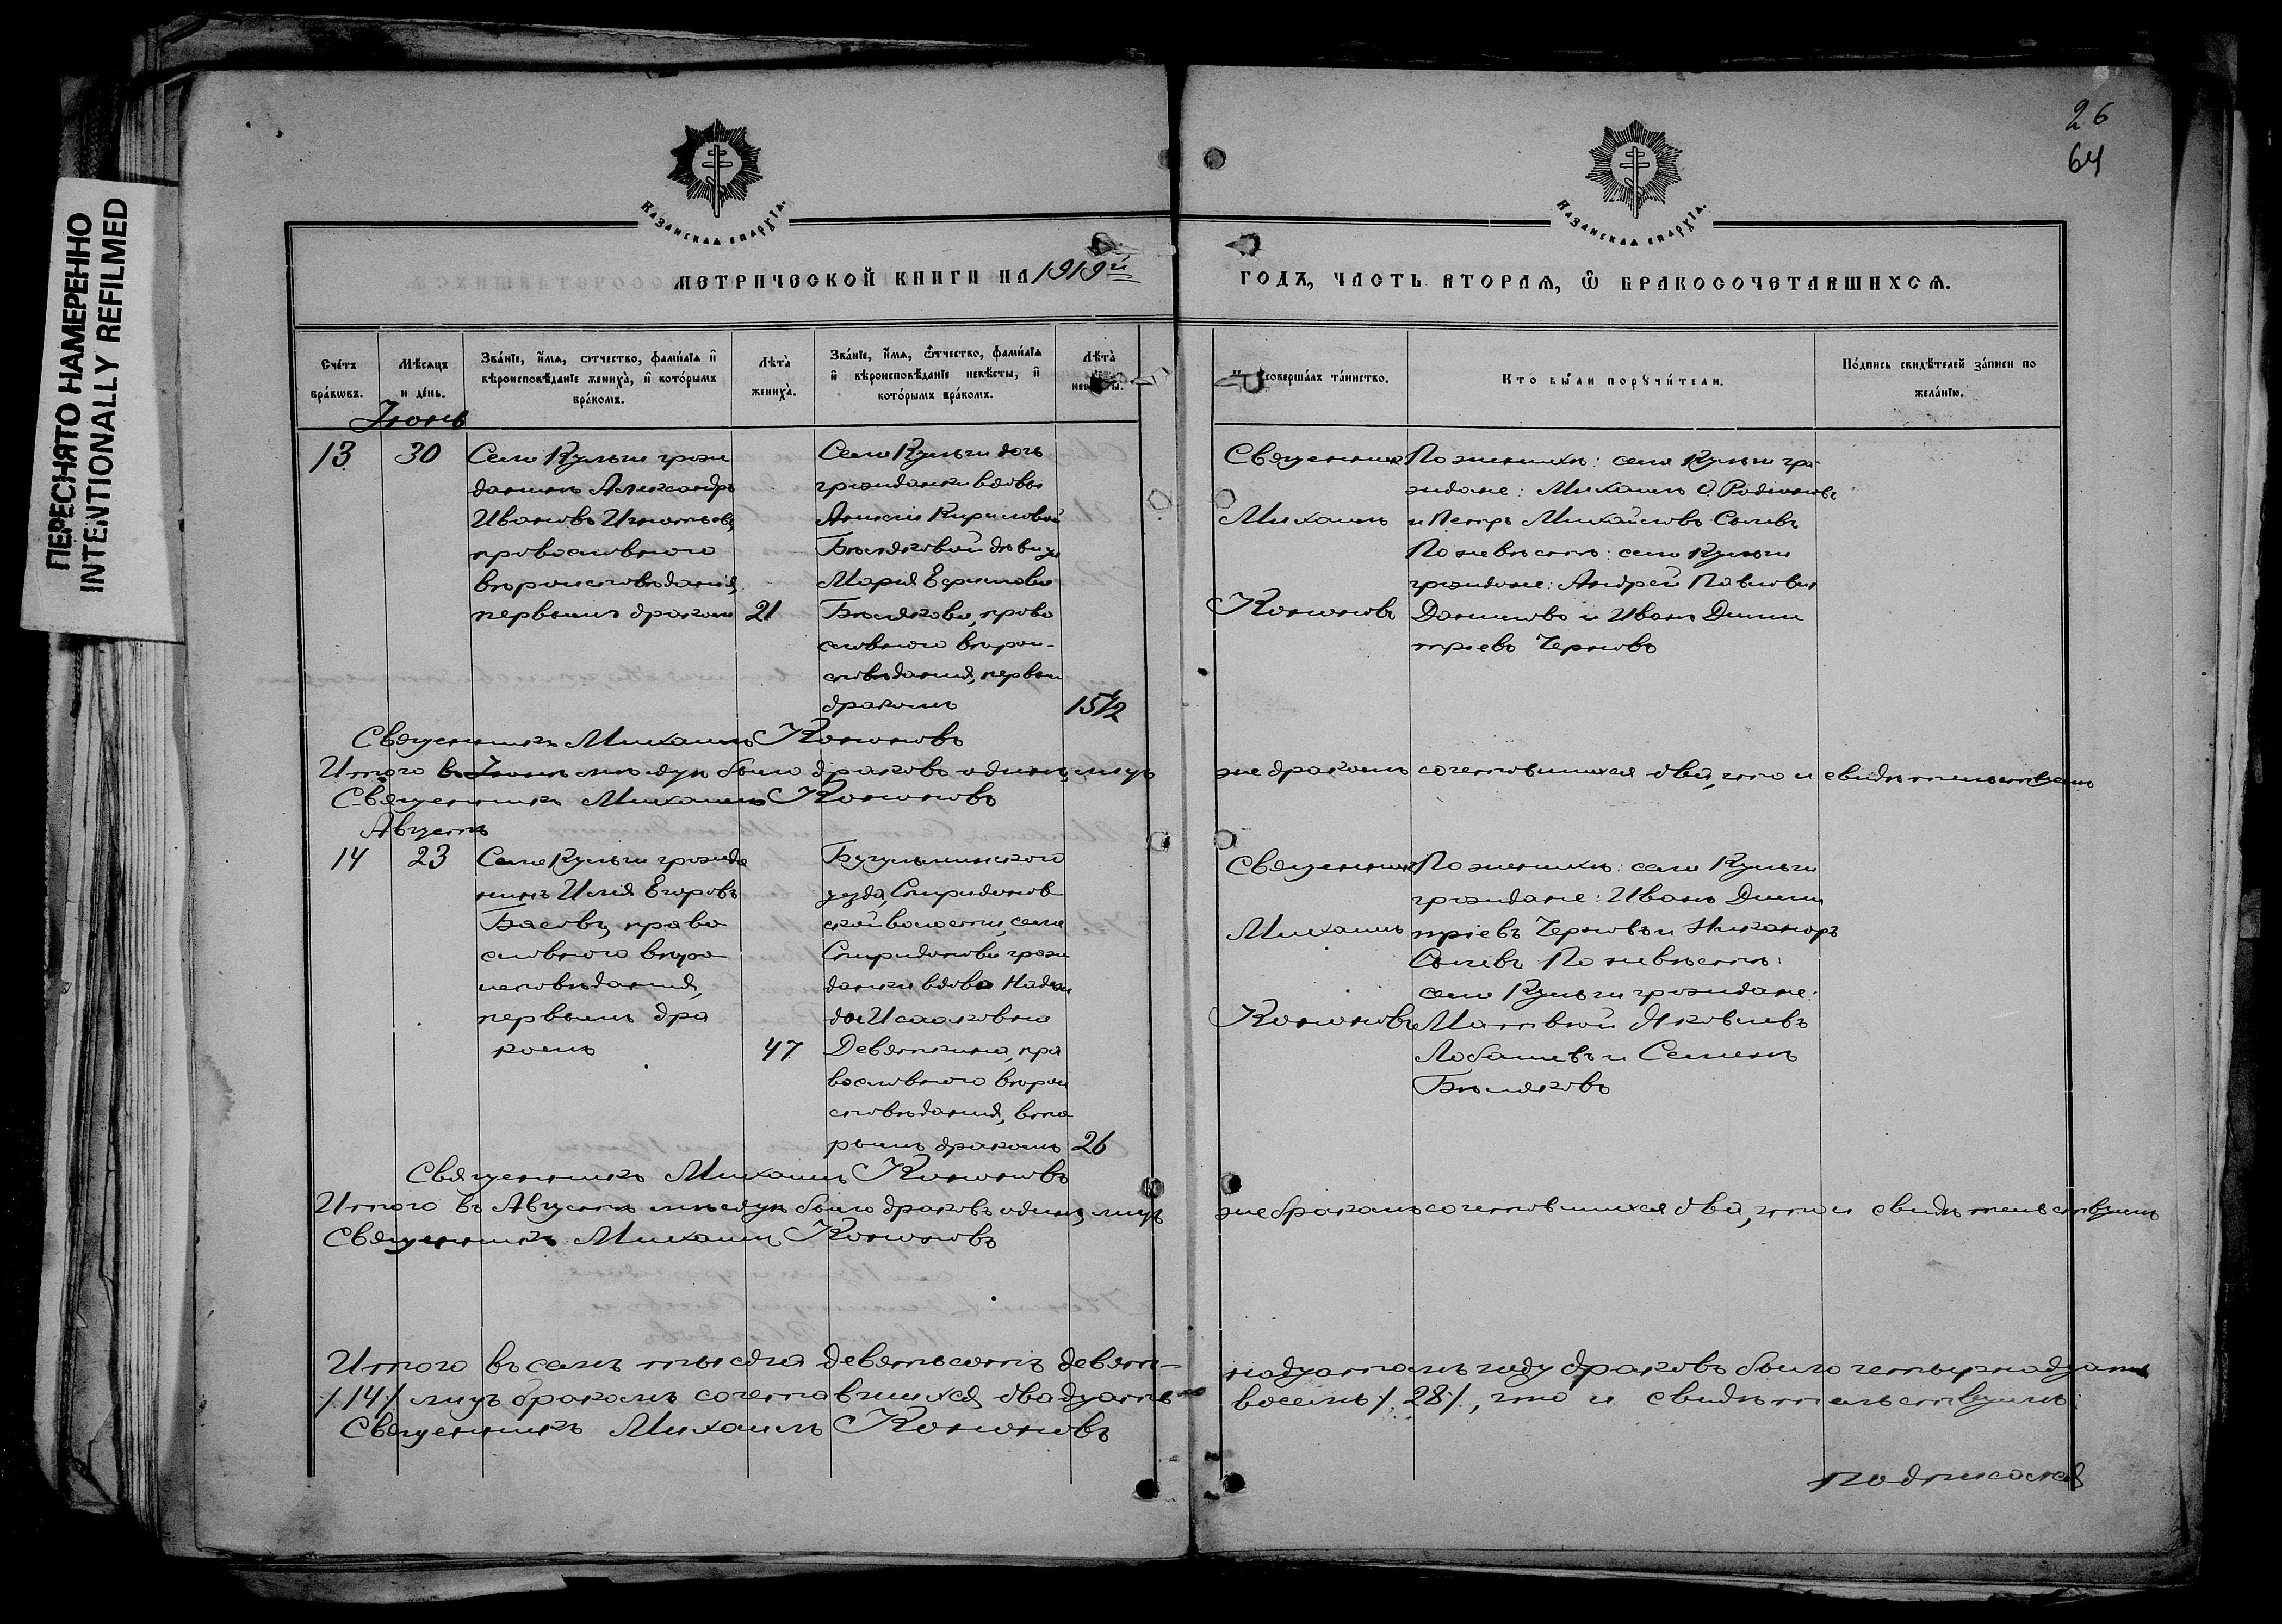 ПЕРЕСНЯТО НАМЕРЕННО
INTENTIONALLY REFILMED
26
64
Казанская епархїа.
Казанская епархїа.
метрической книги на 1919й
годъ, часть вторая, ѡ бракосочетавшихся.
Счетъ браковъ.
Мѣсяцъ и день.
Званіе, имя, отчество, фамилія и вѣроисповѣданіе жениха, и которымъ бракомъ.
Лѣта жениха.
Званіе, имя, ѿтчество, фамилія и вѣроисповѣданіе невѣсты, и которымъ бракомъ.
Лѣта невѣсты.
совершалъ таинство.
Кто были поручители.
Подпись свидѣтелей записи по желанію.
Іюнь
13
30
Села Кульги граж
данинъ Александръ
Ивановъ Игнатьевъ,
православнаго
вѣроисповѣданія,
первымъ бракомъ
21
Села Кульги дочь
гражданки вдовы
Анисіи Кириловой
Бѣляковой дѣвица
Марія Ефимова
Бѣлякова, право
славнаго вѣрои-
сповѣданія, первым
бракомъ
15 1/2
Священникъ
Михаилъ
Кононовъ
По женихѣ: села Кульги гра
ждане: Михаилъ Ѳ. Родионовъ
и Петръ Михайловъ Сычевъ
По невѣстѣ: села Кульги
граждане: Андрей Павловъ
Даниловъ и Иванъ Дими
тріевъ Черновъ
Священникъ Михаилъ Кононовъ
Итого въ Іюнѣ мѣсяцѣ было браковъ одинъ, лицъ
же бракомъ сочетавшихся два, что и свидѣтельствуемъ
Священникъ Михаилъ Кононовъ
Августъ
14
23
Села Кульги гражда
нинъ Илія Егоровъ
Басовъ, право
славнаго вѣро
исповѣданія,
первымъ бра
комъ
47
Бугульминскаго
уезда, Спиридонов
ской волости, села
Спиридонова граж
данки вдова Надеж
да Исааковна
Девяткина, пра
вославнаго вѣрои
сповѣданія, вто
рымъ бракомъ
26
Священникъ
Михаилъ
Кононовъ
По женихѣ: села Кульги
граждане: Иванъ Дими
тріевъ Черновъ и Никаноръ
Сычевъ По невѣстѣ:
села Кульги граждане:
Матвѣй Яковлевъ
Лобашевъ и Семенъ
Бѣляковъ
Священникъ Михаилъ Кононовъ
Итого въ Августѣ мѣсяцѣ было браковъ одинъ, лицъ
же бракомъ сочетавшихся два, что и свидѣтельствуемъ
Священникъ Михаилъ Кононовъ
Итого въ семъ тысяча девятьсотъ девят-
надцатомъ году браковъ было четырнадцать
/.14./ лицъ бракомъ сочетавшихся двадцать
восемь /.28./, что и свидѣтельствуемъ:
Священникъ Михаилъ Кононовъ